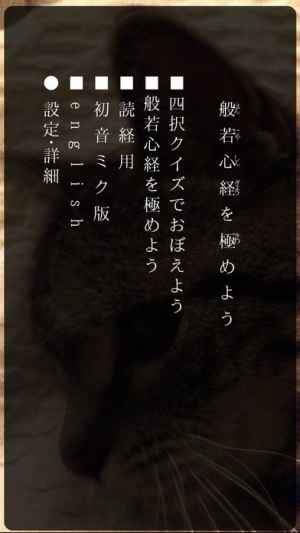 般若心経を極めよう
■四択クイズでおぼえよう
■般若心経を極めよう
■読経用
■初音ミク版
■english
●設定・詳細